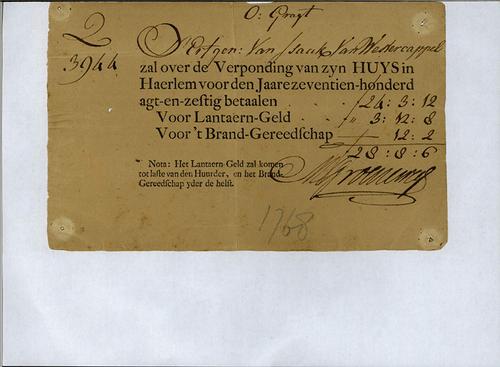 O: Graft
2
D'Erfgen: Van Isaak Van Westercappel
3944
zal over de Verponding van zyn HUYS in
Haerlem voor den Jaare zeventien-honderd
agt-en-zestig betaalen ƒ 24 : 3 : 12
Voor Lantaern-Geld „ 3 : 12 : 8
Voor 't Brand-Gereedschap 12 : 2
28 : 8 : 6
Nota: Het Lantaern-Geld zal komen
tot laste van den Huurder, en het Brand-
Gereedschap yder de helft.
1768